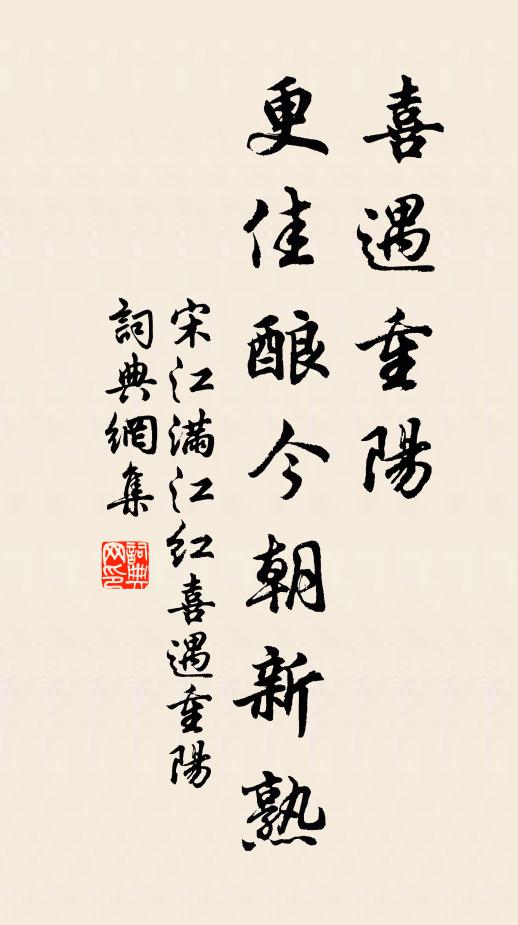 喜遇重陽
更佳酿今朝新熟
宋江满江红喜遇重陽
詞典網集
詞典网印